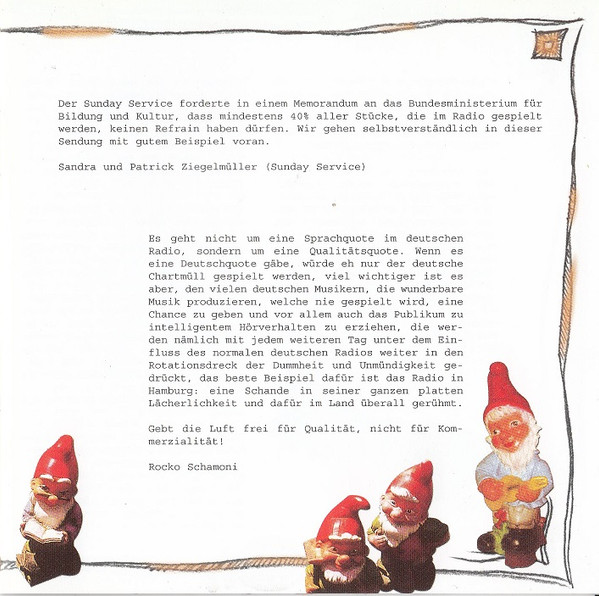 Der Sunday Service forderte in einem Memorandum an das Bundesministerium für
Bildung und Kultur, dass mindestens 40% aller Stücke, die im Radio gespielt
werden, keinen Refrain haben dürfen. Wir gehen selbstverständlich in dieser
Sendung mit gutem Beispiel voran.
Sandra und Patrick Ziegelmüller (Sunday Service)
Es geht nicht um eine Sprachquote im deutschen
Radio, sondern um eine Qualitätsquote. Wenn es
eine Deutschquote gäbe, würde eh nur der deutsche
Chartmüll gespielt werden, viel wichtiger ist es
aber, den vielen deutschen Musikern, die wunderbare
Musik produzieren, welche nie gespielt wird, eine
Chance zu geben und vor allem auch das Publikum zu
intelligentem Hörverhalten zu erziehen, die wer-
den nämlich mit jedem weiteren Tag unter dem Ein-
fluss des normalen deutschen Radios weiter in den
Rotationsdreck der Dummheit und Unmündigkeit ge-
drückt, das beste Beispiel dafür ist das Radio in
Hamburg: eine Schande in seiner ganzen platten
Lächerlichkeit und dafür im Land überall gerühmt.
Gebt die Luft frei für Qualität, nicht für Kom-
merzialität!
Rocko Schamoni